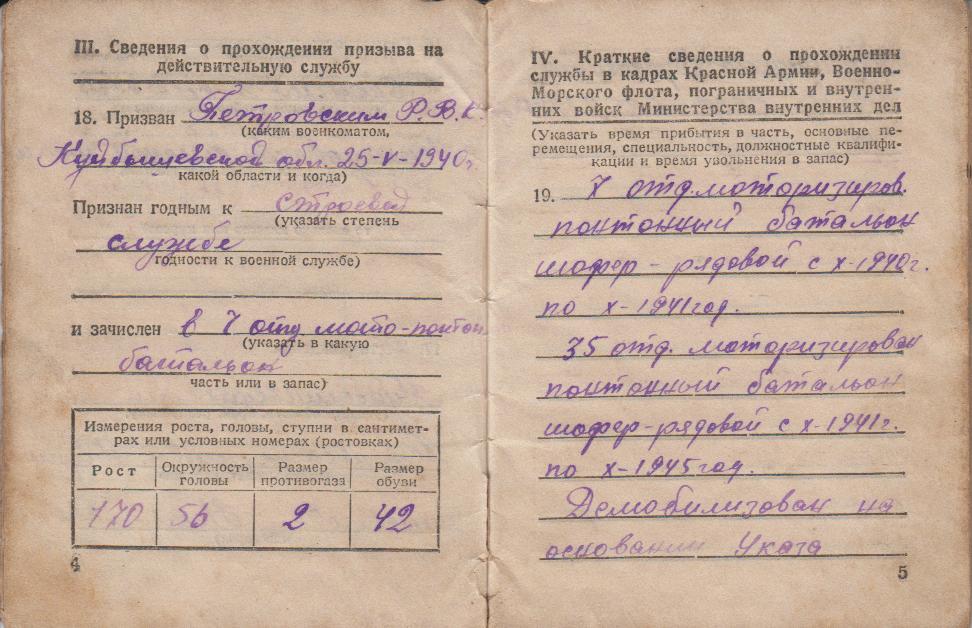 III. Сведения о прохождении призыва на
действительную службу
18. Призван Петровским Р.В.К.
(каким военкоматом,
Куйбышевской обл. 25-V-1940г.
какой области и когда)
Признан годным к строевой
(указать степень
службе
годности к военной службе)
и зачислен в 7 отд мото-понтон
(указать в какую
батальон
часть или в запас)
Измерения роста, головы, ступни в сантимет-
рах или условных номерах (ростовках)
Рост Окружность головы Размер противогаза Размер обуви
170 56 2 42
4
IV. Краткие сведения о прохождении
службы в кадрах Красной Армии, Военно-
Морского флота, пограничных и внутрен-
них войск Министерства внутренних дел
(Указать время прибытия в часть, основные пе-
ремещения, специальность, должностные квалифи-
кации и время увольнения в запас)
19. 7 отд. моторизиров.
понтонный батальон
шофер - рядовой с X-1940г.
по X-1941год.
35 отд. моторизирован
понтонный батальон
шофер-рядовой с X-1941г.
по X-1945год.
Демобилизован на
основании Указа
5